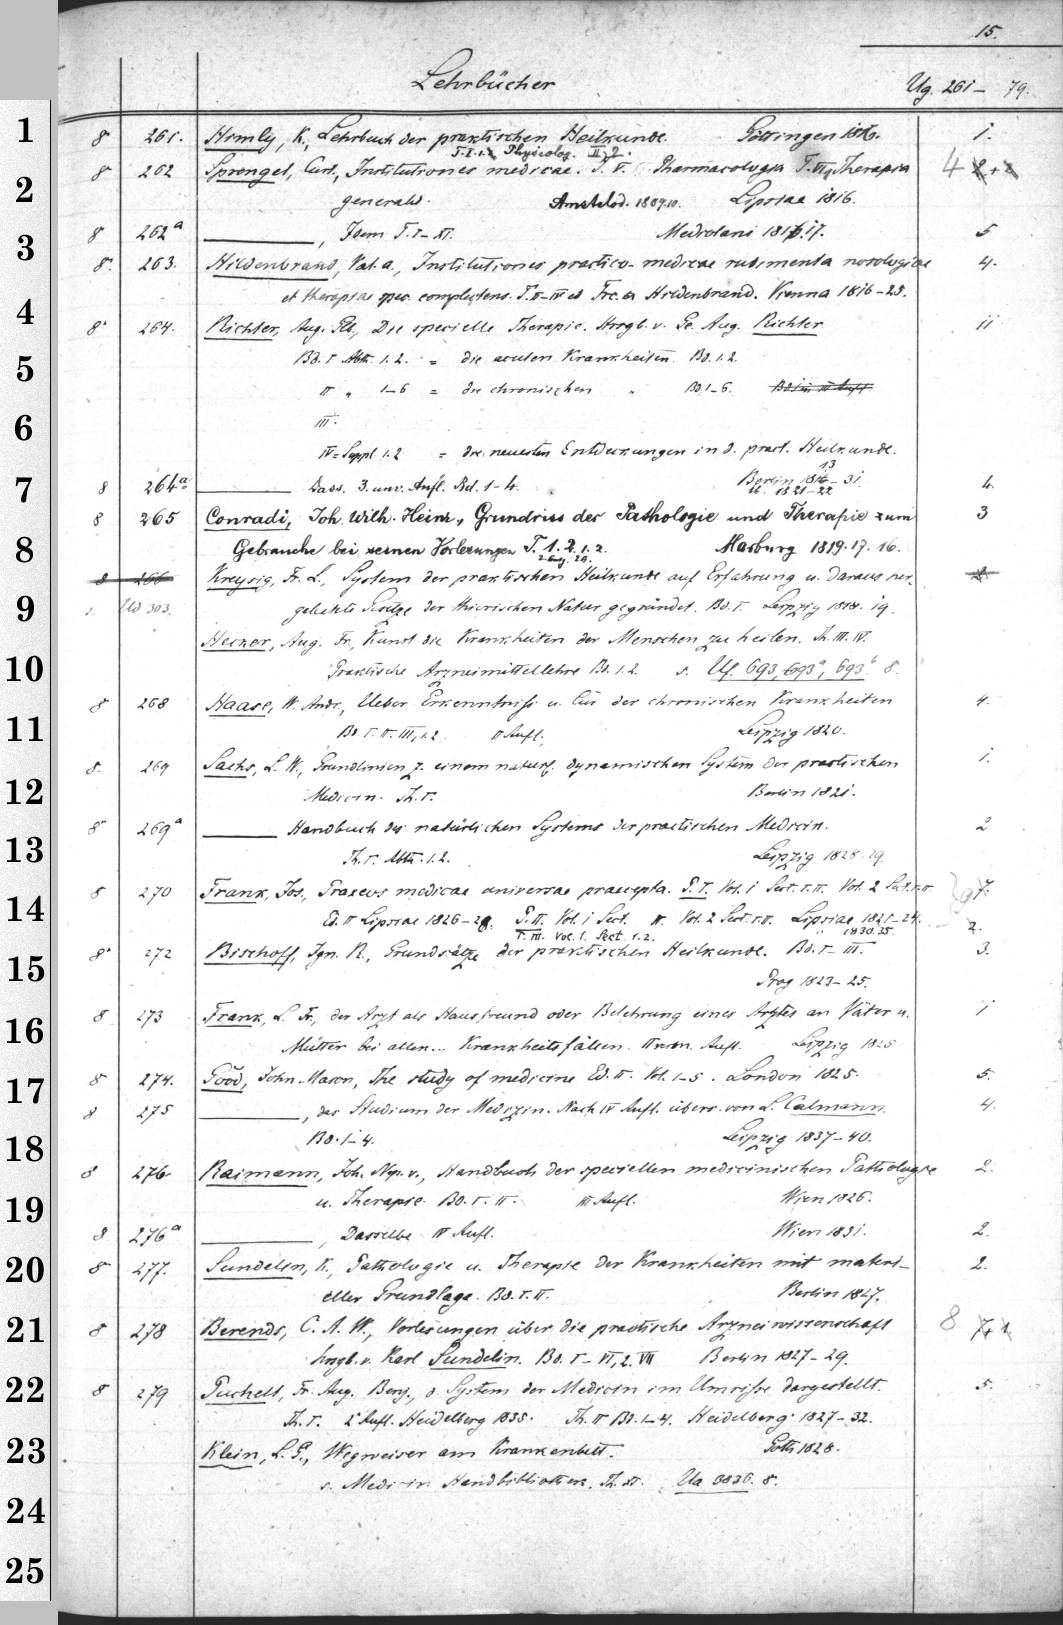 15.
Lehrbücher Ug. 261– 79.
1 8 261. Himly, K., Lehrbuch der praktischen Heilkunde. Göttingen 1816. 1.
T. I. 1.2 Physiolog. II, 2.
8 262 Sprengel, Curt., Institutiones medicae. T. V. Pharmacologia T. VI, Therapia 4
2 generalis. Amstelod. 1809.10. Lipsiae 1816.
3 8 262a ———, Idem T. I–XI. Mediolani 1816.17. 5
8. 263. Hildenbrand, Val. a., Institutiones practico-medicae rudimenta nosologiae 4.
4 et therapiae spec. complectens. T. II–IV ed Frc. a Hildenbrand. Vienna 1816–25.
8 264. Richter, Aug. Gtl., Die specielle Therapie. Hrsgb. v. Ge. Aug. Richter 11
5 Bd. I Abth. 1.2. = die acuten Krankheiten. Bd. 1.2.
II „ 1–6 = die chronischen „ Bd. 1–6.
6 III.
IV = Suppl. 1.2 = die neuesten Entdeckungen in d. pract. Heilkunde.
13
7 8 264a ——— Dass. 3. unv. Aufl. Bd. 1–4. Berlin 1816–31. 4.
u. 1821–22
8 265 Conradi, Joh. Wilh. Heinr., Grundriss der Pathologie und Therapie zum 3
8 Gebrauche bei seinen Vorlesungen T. 1. 2. 1. 2. Marburg 1819.17.16.
8 266 Kreysig, Fr. L., System der praktischen Heilkunde auf Erfahrung u. daraus her-
9 s. Ud 303. geleitete Gesetze der thierischen Natur gegründet. Bd. I. Leipzig 1818. 19.
Hecker, Aug. Fr., Kunst die Krankheiten der Menschen zu heilen. Th. III. IV.
10 Praktische Arzneimittellehre Bd. 1.2. s. Uf. 693, 693a, 693b 8.
8 268 Haase, W. Andr., Ueber Erkenntniss u. Cur der chronischen Krankheiten 4.
11 Bd. I. II. III, 1.2. II Aufl. Leipzig 1820.
8. 269 Sachs, L. W., Grundlinien z. einem naturf. dynamischen System der practischen 1.
12 Medicin. Th. I. Berlin 1821.
8 269a ——— Handbuch des natürlichen Systems der practischen Medicin. 2
13 Th. I. Abth. 1.2. Leipzig 1828.29.
8 270 Frank, Jos., Praxeos medicae universae praecepta. P. I. Vol. 1 Sect. I.II. Vol. 2 Sect. I.II 7.
14 Ed. II Lipsiae 1826–29. P. II. Vol. 1 Sect. II. Vol. 2 Sect. I.II. Lipsiae 1821–24.
T. III. Vol. 1. Sect. 1.2. „ 1830.35. 2.
15 8 272 Bischoff, Ign. R., Grundsätze der praktischen Heilkunde. Bd. I–III. 3.
Prag 1823–25.
16 8 273 Frank, L. Fr., der Arzt als Hausfreund oder Belehrung eines Arztes an Väter u. 1
Mütter bei allen.. Krankheitsfällen. II verm. Aufl. Leipzig 1825
17 8 274. Good, John Mason, The study of medicine Ed. II. Vol. 1–5. London 1825. 5.
8 275 ———, das Studium der Medizin. Nach IV Aufl. übers. von L. Calmann. 4.
18 Bd. 1–4. Leipzig 1837–40.
8 276 Raimann, Joh. Nep. v., Handbuch der speciellen medicinischen Pathologie 2.
19 u. Therapie Bd. I. II. III Aufl. Wien 1826.
8 276a ———, Dasselbe IV Aufl. Wien 1831. 2.
20 8 277. Sundelin, K., Pathologie u. Therapie der Krankheiten mit materi- 2.
eller Grundlage. Bd. I. II. Berlin 1827.
21 8 278 Berends, C. A. W., Vorlesungen über die practische Arzneiwissenschaft 8
hrsgb. v. Karl Sundelin. Bd. I–VI, 2. VII Berlin 1827–29.
22 8 279 Puchelt, Fr. Aug. Benj., d. System der Medicin im Umrisse dargestellt. 5.
Th. I. 2 Aufl. Heidelberg 1835. Th. II Bd. 1–4. Heidelberg 1827–32.
23 Klein, L. G., Wegweiser am Krankenbett. Goth 1828.
s. Medicin Handbibliothek. Th. XI. Ua 3836. 8.
24
25